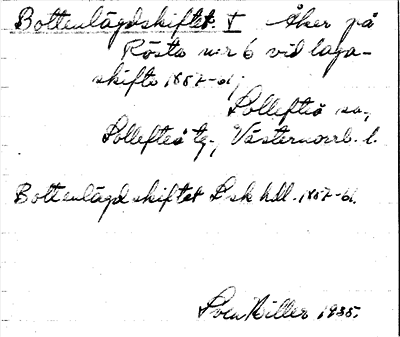 Bottenlägdskiftet † Åker på
Rösta nr 6 vid laga-
skifte 1857-61;
Sollefteå sn.,
Sollefteå tg., Västernorrl. l.
Bottenlägdskiftet Lsk hdl. 1857-61.
Sven Hiller 1935.